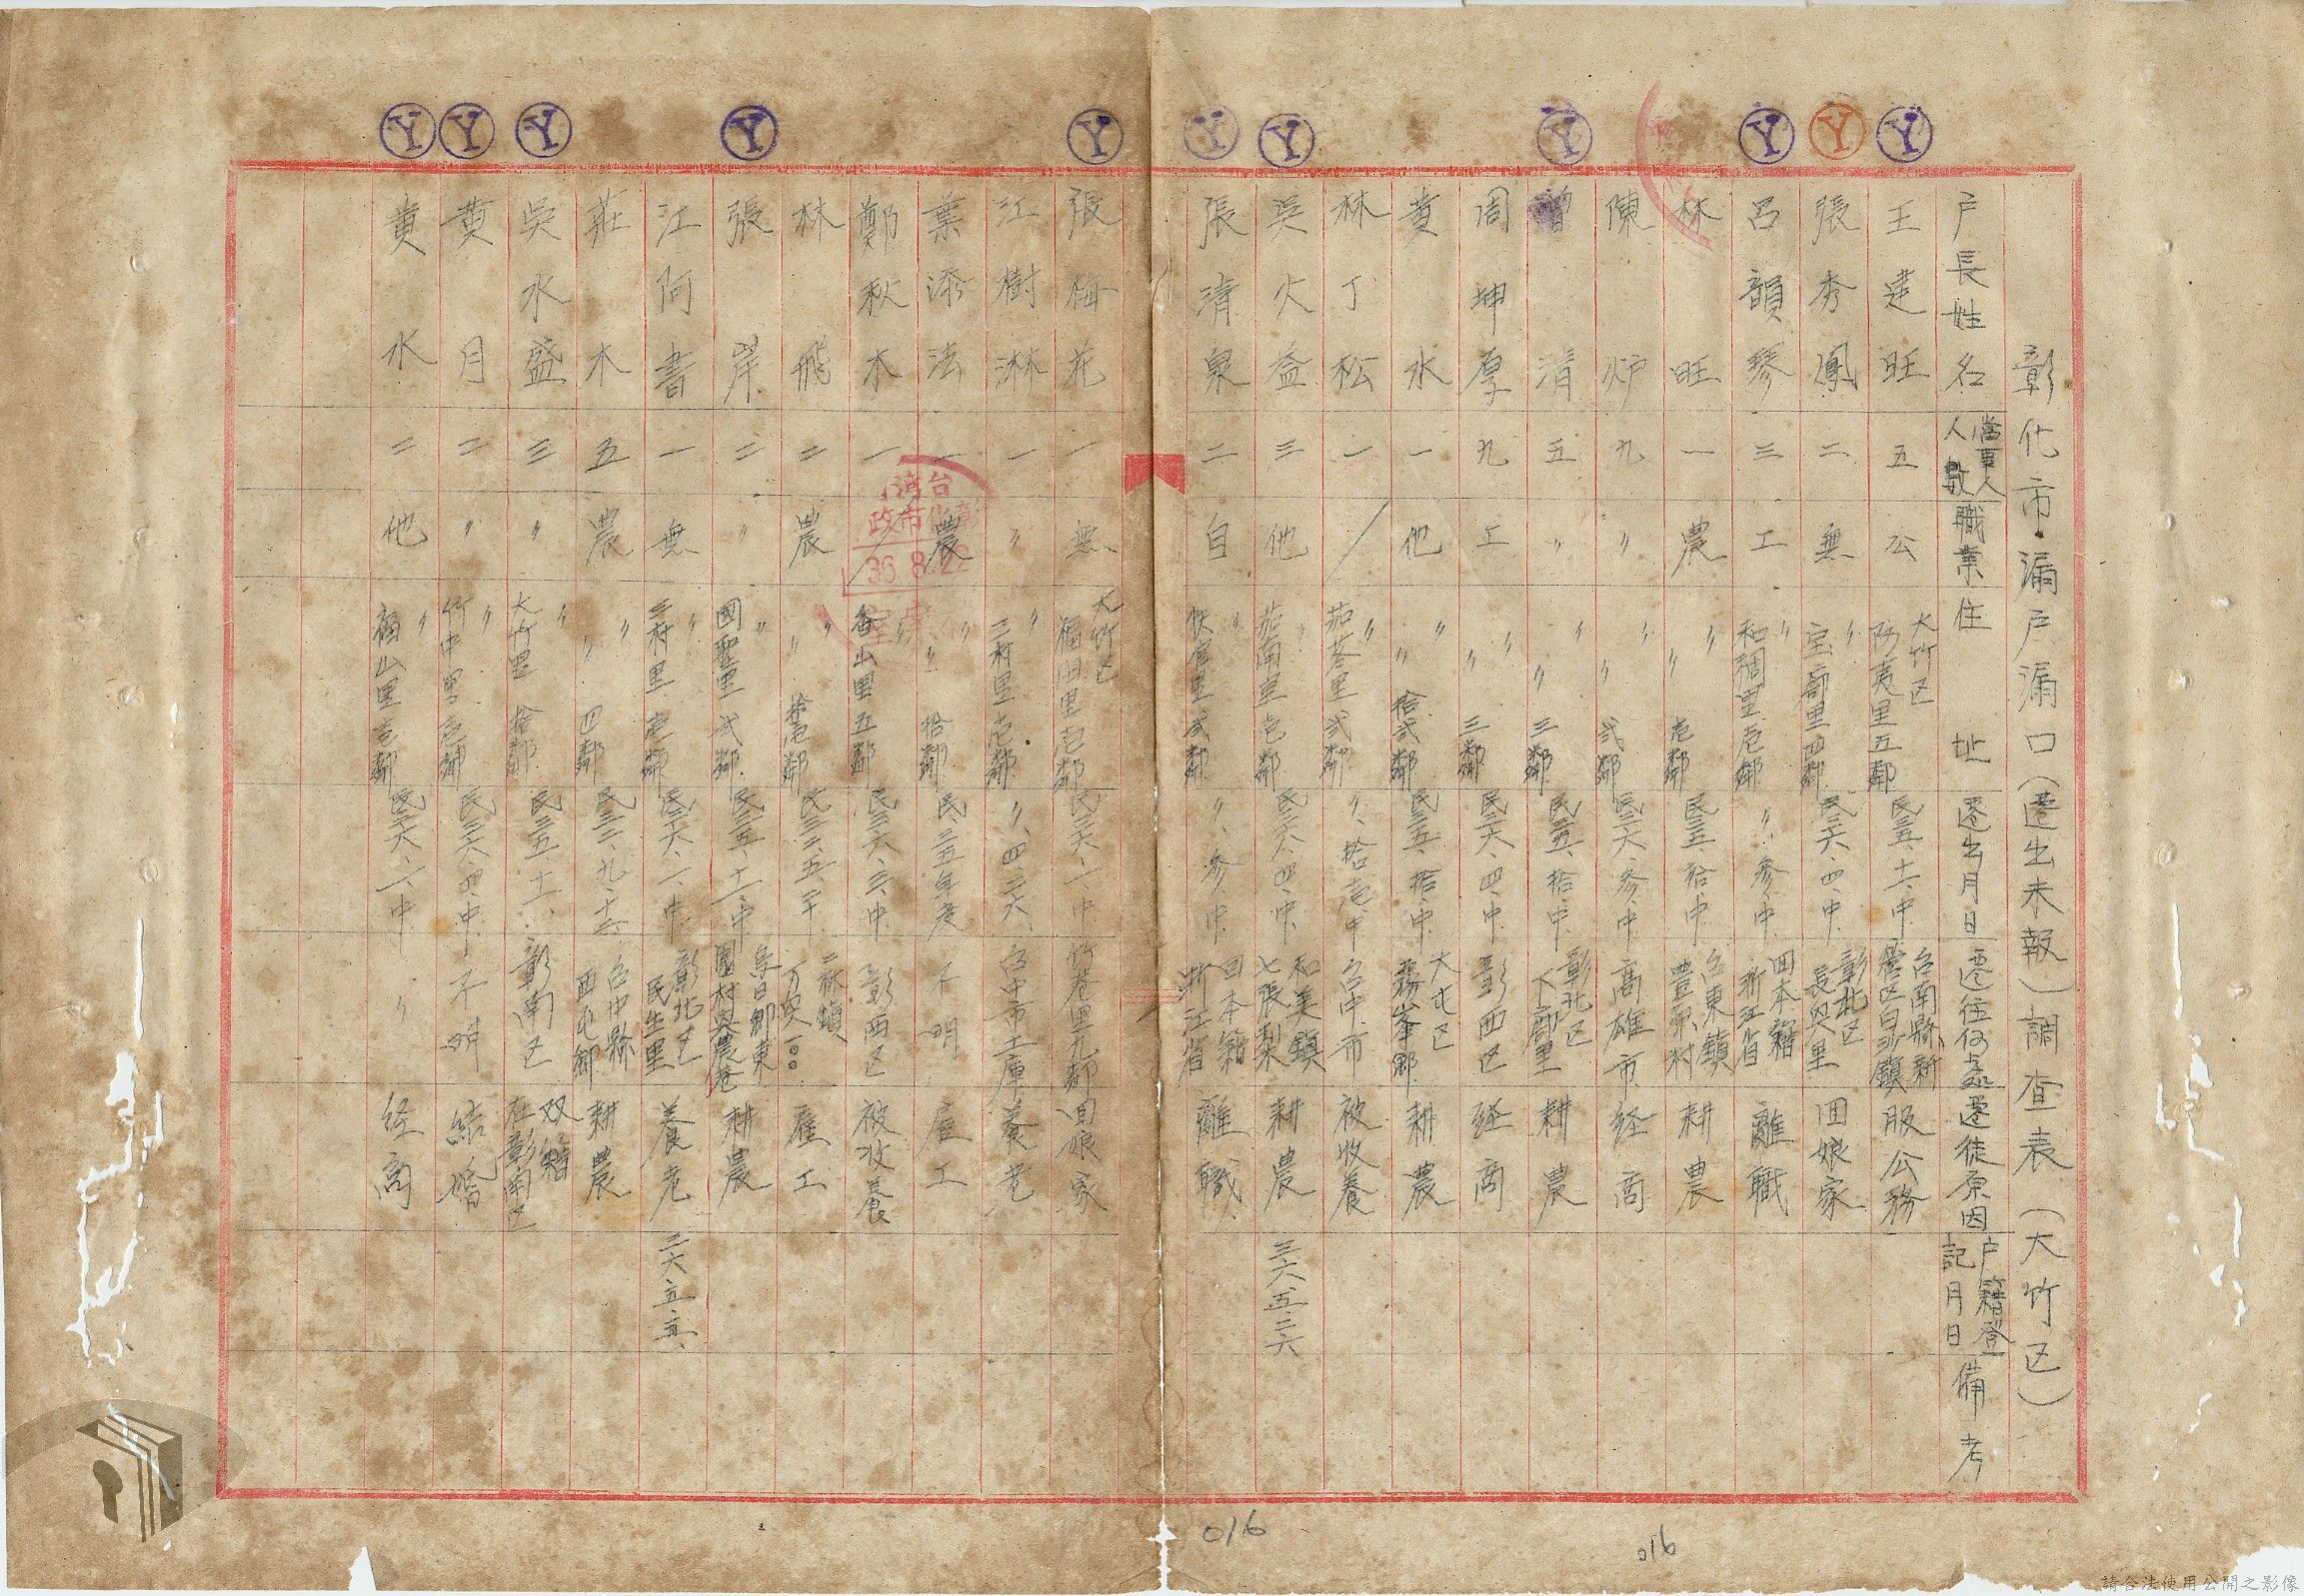 彰化市漏戶漏口(遷出未報)調查表(大竹区)
戶長姓名 當事人人數 職業 住址 遷出月日 遷往何處 遷徒原因 戶籍登記月日 備考
王建旺 五 公 大竹区阿夷里五鄰 民三五、十一、中 台南縣新營区白沙鎮 服公務
張秀鳳 二 無 〃宝廍里四鄰 民三六、四、中 彰北区長興里 囬娘家
呂韻琴 三 工 〃和稠里壱鄰 〃、參、中 囬本籍浙江省 離職
林旺 一 農 〃〃壱鄰 民三五、拾、中 台東鎮豊栄村 耕農
陳炉 九 〃 〃〃弍鄰 民三六、參、中 高雄市 经商
曾清 五 〃 〃〃三鄰 民三五、拾、中 彰北区下廍里 耕農
周坤厚 九 工 〃〃三鄰 民三六、四、中 彰西区 经商
黄水 一 他 〃〃拾弍鄰 民三五、拾、中 大屯区霧峯鄉 耕農
林丁松 一 / 〃茄苳里弍鄰 〃、拾壱、中 台中市 被收養
吳火益 三 他 〃茄南里壱鄰 民三六、四、中 和美鎮七張梨 耕農 三六、五、二六
張清泉 二 自 〃快官里弍鄰 〃、參、中 囬本籍浙江省 離職
張梅花 一 無 大竹区福田里壱鄰 民三六、一、中 竹巷里九鄰 囬娘家
江樹淋 一 〃 〃三村里壱鄰 〃、四、二六 台中市土庫 養老
葉添法 一 農 〃〃拾鄰 民、三五年度 不明 雇工
鄭秋木 一 / 〃香山里五鄰 民三六、三、中 彰西区 被收養
林飛 二 農 〃〃拾壱鄰 民三六、五、二十 二林鎮万興一〇〇 雇工
張岸 二 〃 〃國聖里弍鄰 民三五、十一、中 烏日鄉東園村興農巷 耕農
江阿書 一 無 〃三村里壱鄰 民三六、一、中 彰北区民生里 養老 三六、五、五、
莊木 五 農 〃〃四鄰 民三二、九、十六 台中縣西屯鄉 耕農
吳水盛 三 〃 〃大竹里拾鄰 民三五、十一、 彰南区 双籍在彰南区
黄月 二 〃 〃竹中里壱鄰 民三六、四、中 不明 結婚
黄水 二 他 〃福山里壱鄰 民三六、一、中 〃 经商
台湾
彰化市政
36.8.22
016
016
請合法使用公開之影像